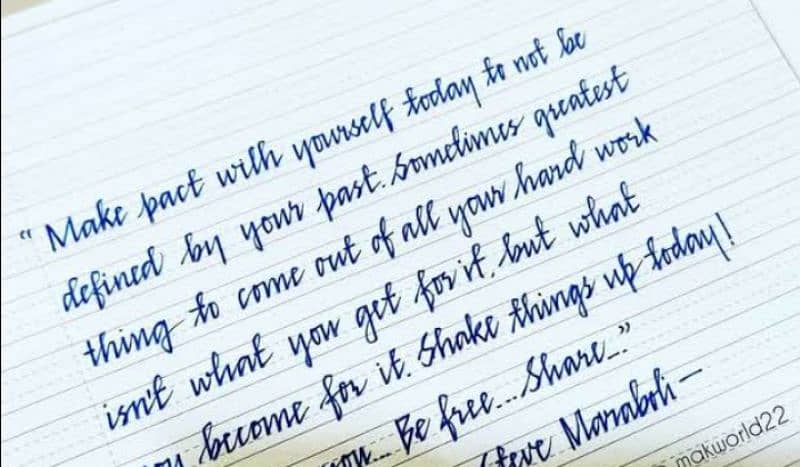 “ Make pact with yourself today to not be
defined by your past. Sometimes greatest
thing to come out of all your hard work
isn't what you get for it, but what
you become for it. Shake things up today!
you... Be free... Share..."
Steve Maraboli —
makworld22